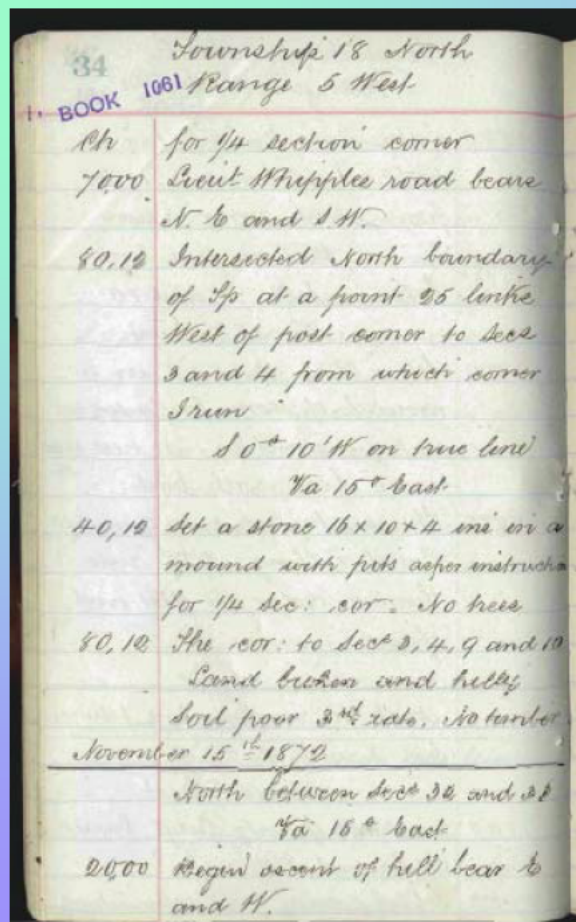 34 Township 18 North
1. BOOK 1061 Range 5 West
Ch for 1/4 section corner
70,00 Lieut Whipples road bears
N. E and S W.
80,12 Intersected North boundary
of Tp at a point 25 links
West of post corner to Secs
3 and 4 from which corner
I run
S 0° 10' W on true line
Va 15° East
40,12 Set a stone 16 x 10 x 4 ins in a
mound with pits as per instruction
for 1/4 Sec: cor. No trees
80,12 The cor: to Secs 3, 4, 9 and 10
Land broken and hilly
Soil poor 3rd rate. No timber
November 15th 1872
North between Secs 32 and 33
Va 15° East
20,00 Begin ascent of hill bear E
and W.